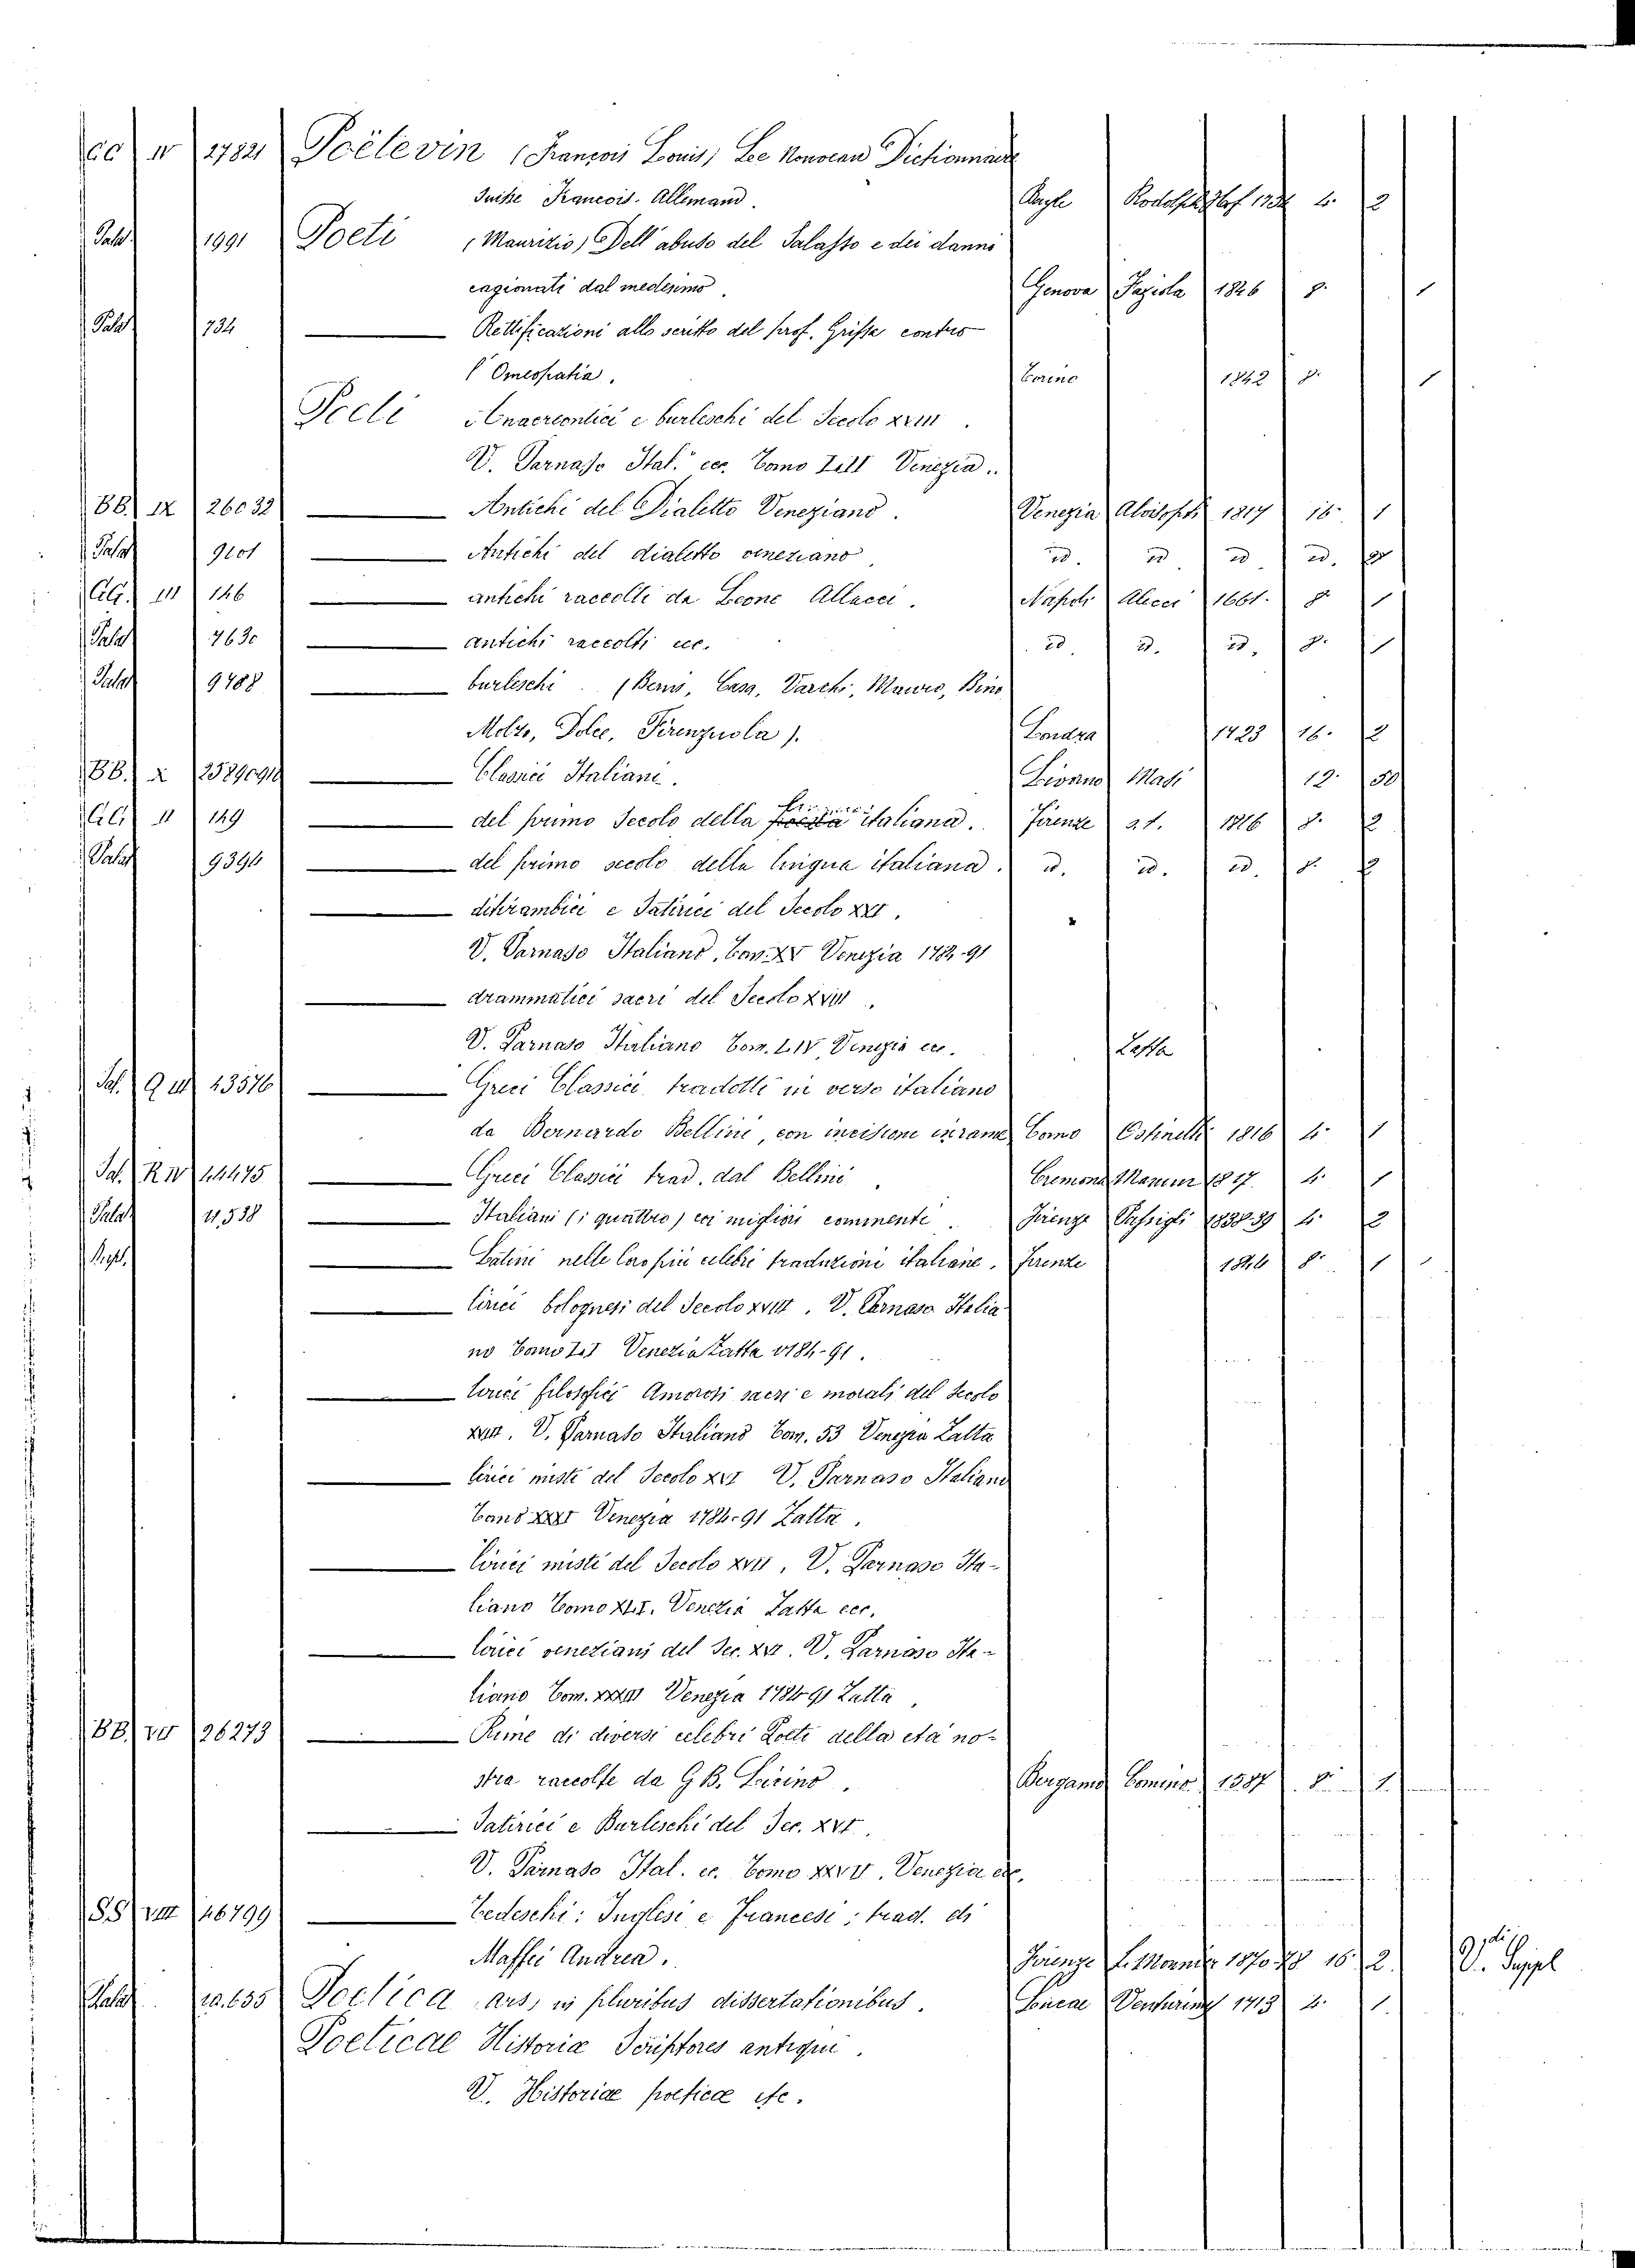 CC IV 2782 Poëtevin (François Louis) Le Nouveau Dictionnaire
Suisse Francois-Allemand. Basle Rodolph 4. 2
Palat. 1991 Poeti (Maurizio) Dell'abuso del Salasso e dei danni
cagionati dal medesimo. Genova Pagiola 1826 8. 1
Palat 734 Rettificazioni allo scritto del prof. Griffa contro
l'Omeopatia. Torino 1842 8. 1
Poeti Anacreontici e burleschi del Secolo XVIII.
V. Parnaso Ital. ecc. Tomo Venezia.
BB. IX 26032 Antichi del Dialetto Veneziano. Venezia Alvisopoli 1817 16. 1
Palat 9201 Antichi del dialetto veneziano id. id id id.
III 146 antichi raccolti da Leone Allacci. Napoli Alecci 1661. 8 1
Palat 7630 antichi raccolti ecc. id. id. id. 8. 1
Palat 9788 burleschi. (Berni, Casa, Varchi, Mauro, Bino
Molza, Dolce, Firenzuola). Londra 1723 16. 2
BB. X Classici Italiani. Livorno Masi 12. 50
II 149 del primo Secolo della italiana. Firenze 1816 8. 2
Palat 9394 del primo secolo della lingua italiana. id. id. id. 8. 2
ditirambici e Satirici del Secolo XVI.
V. Parnaso Italiano, Tom. Venezia 1784-91
drammatici sacri del Secolo XVIII.
V. Parnaso Italiano Tom. LIV Venezia ec. Zatta
Sal. Q III 43576 Greci Classici tradotti in verso italiano
da Bernardo Bellini, con incisioni in rame Como Ostinelli 1816 4. 1
Sal. R IV 44475 Greci Classici trad. dal Bellini Cremona Manini 1817. 4. 1
Palat 11,538 Italiani (i quattro) coi migliori commenti. Firenze Passigli 1838.39 4. 2
Latini nelle loro più celebri traduzioni italiane. Firenze 8. 1
lirici bolognesi del Secolo XVIII. V. Parnaso Italia
no Tomo Venezia Zatta 1784-91.
lirici filosofici Amorosi sacri e morali del secolo
XVIII. V. Parnaso Italiano Tom. 53 Venezia Zatta
lirici misti del Secolo XVI V. Parnaso Italiano
Tomo XXXI Venezia 1784-91 Zatta.
lirici misti del Secolo XVII. V. Parnaso Ita-
liano Tomo XLI. Venezia Zatta ecc.
lirici veneziani del Sec. XVI. V. Parnaso Ita-
liano Tom. Venezia 1784 91 Zatta.
BB. VII 26273 Rime di diversi celebri Poeti della età no-
stra raccolte da G B. Licino. Bergamo Comino 1587 8. 1
Satirici e Burleschi del Sec. XVI.
V. Parnaso Ital. ec. Tomo XXVII. Venezia ec.
SS VIII 46799 Tedeschi: Inglesi e Francesi; trad. di
Maffei Andrea. Firenze L. Monnier 1870.78 16 2 V. Suppl
Palat 10.655 Poetica ars, in pluribus dissertationibus. Lucae Venturini 1713 4. 1.
Poeticae Historiae Scriptores antiqui.
V. Historiae poeticae etc.